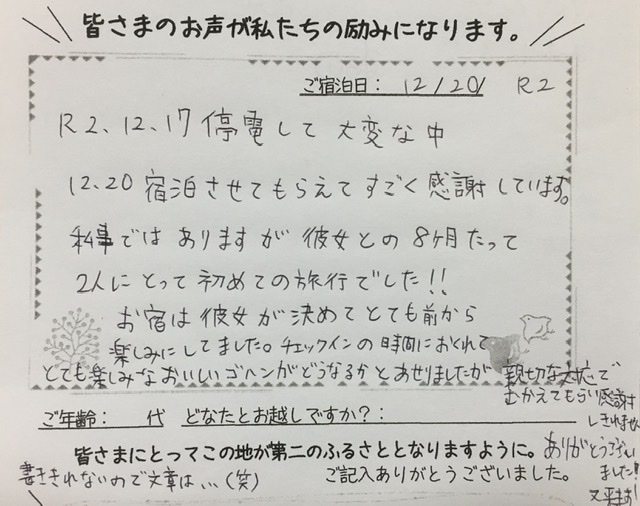 皆さまのお声が私たちの励みになります。
ご宿泊日： 12/20/ R2
R2.12.17 停電して 大変な中
12.20 宿泊させてもらえてすごく感謝しています。
私事では ありますが 彼女との 8ヶ月たって
2人にとって初めての旅行でした!!
お宿は彼女が決めてとても前から
楽しみにしてました。チェックインの時間におくれて
とても楽しみなおいしいゴハンがどうなるかとあせりましたが 親切な対応で
むかえてもらい感謝
しきれません
ご年齢： 代 どなたとお越しですか？：
皆さまにとってこの地が第二のふるさととなりますように。
ありがとうござい
ました!!
又平ます!
書ききれないので文章は...(笑)
ご記入ありがとうございました。